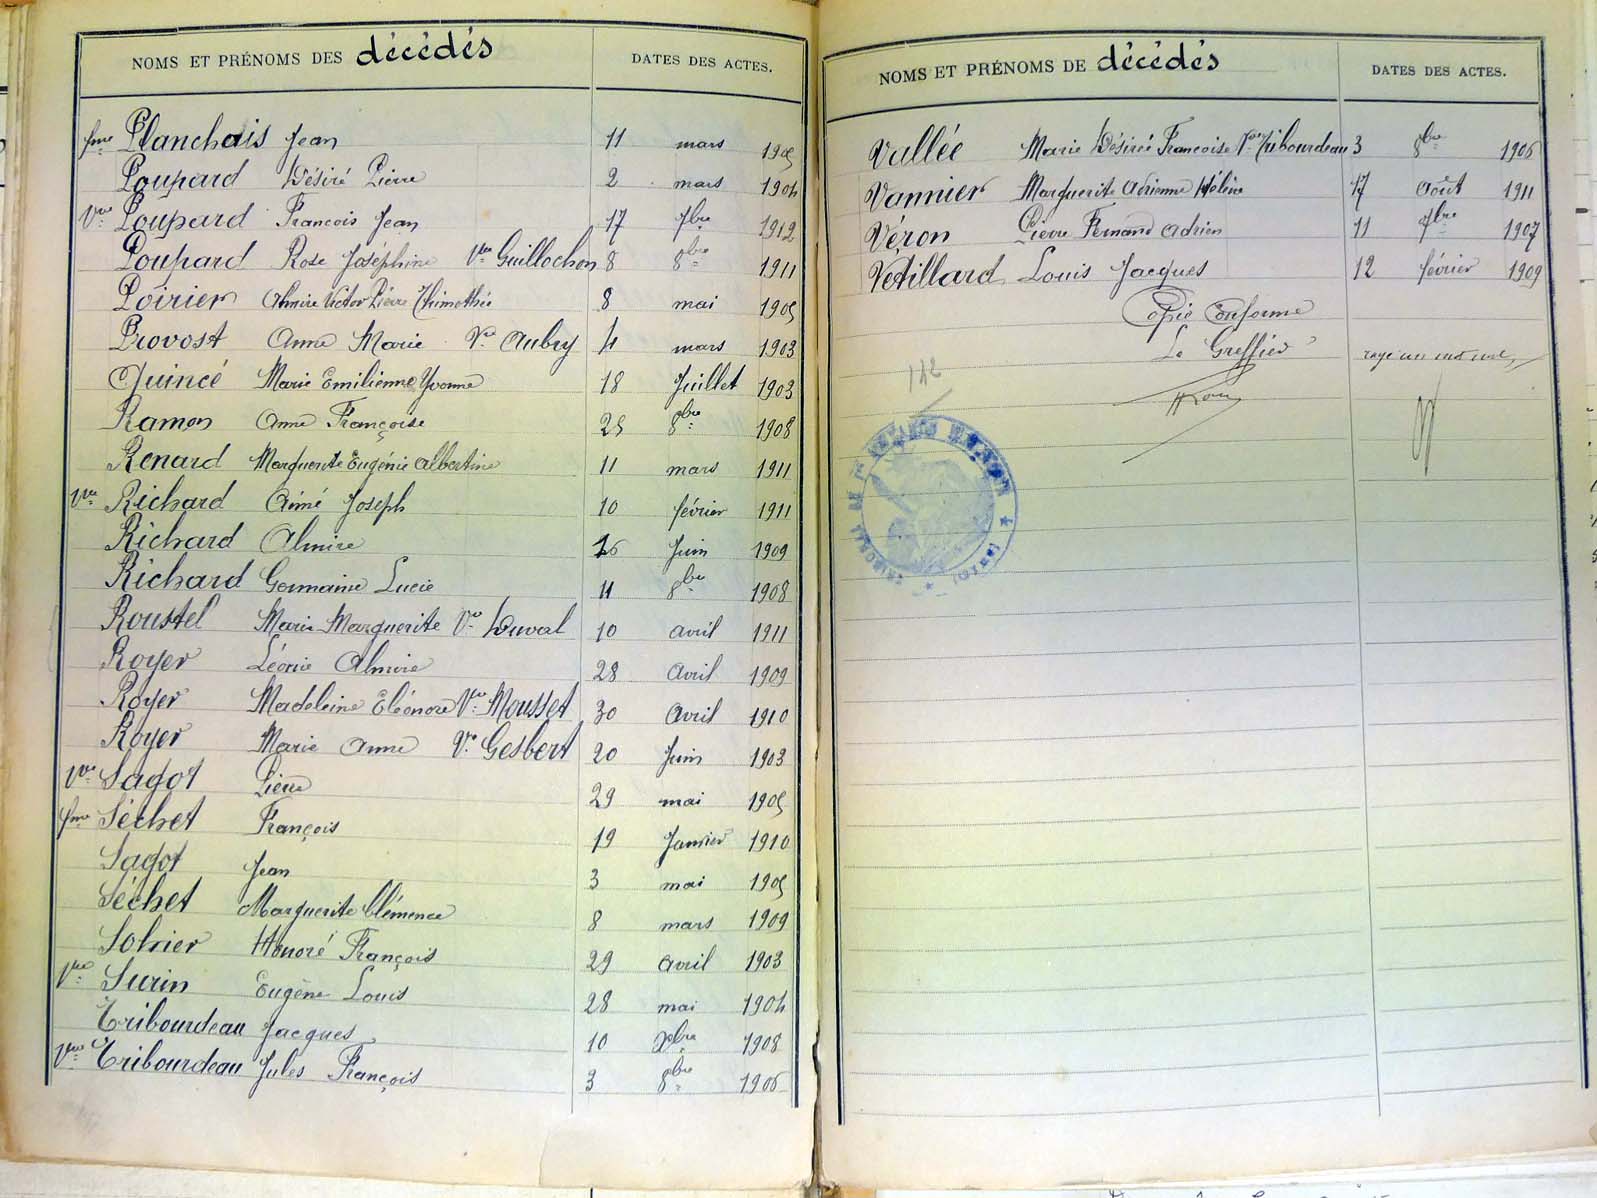 NOMS ET PRÉNOMS DES décédés DATES DES ACTES.
fme Planchais Jean 11 mars 1905
Poupard Désiré Pierre 2 mars 1904
Vve Poupard François Jean 17 7bre 1912
Poupard Rose Joséphine Vve Guillochon 8 8bre 1911
Poirier Almire Victor Pierre Thimothée 8 mai 1905
Provost Anne Marie Vve Aubry 4 mars 1903
Quincé Marie Emilienne Yvonne 18 Juillet 1903
Ramon Anne Françoise 25 8bre 1908
Renard Marguerite Eugénie Albertine 11 mars 1911
Vve Richard Aimé Joseph 10 février 1911
Richard Almire 16 Juin 1909
Richard Germaine Lucie 11 8bre 1908
Roustel Marie Marguerite Vve Duval 10 avril 1911
Royer Léonie Almire 28 Avril 1909
Royer Madeleine Eléonore Vve Mousset 30 Avril 1910
Royer Marie Anne Vve Gesbert 20 Juin 1903
Vve Sagot Pierre 29 mai 1905
fme Séchet François 19 Janvier 1910
Sagot Jean 3 mai 1905
Séchet Marguerite Clémence 8 mars 1909
Sohier Honoré François 29 avril 1903
Vve Surin Eugène Louis 28 mai 1904
Tribourdeau Jacques 10 Xbre 1908
Vve Tribourdeau Jules François 3 8bre 1906
NOMS ET PRÉNOMS DE décédés DATES DES ACTES.
Vallée Marie Désirée Françoise Vve Tribourdeau 3 8bre 1906
Vannier Marguerite Adrienne Hélène 17 Août 1911
Véron Pierre Fernand Adrien 11 7bre 1907
Vétillard Louis Jacques 12 février 1909
Copie Conforme
Le Greffier rayé un mot nul
112